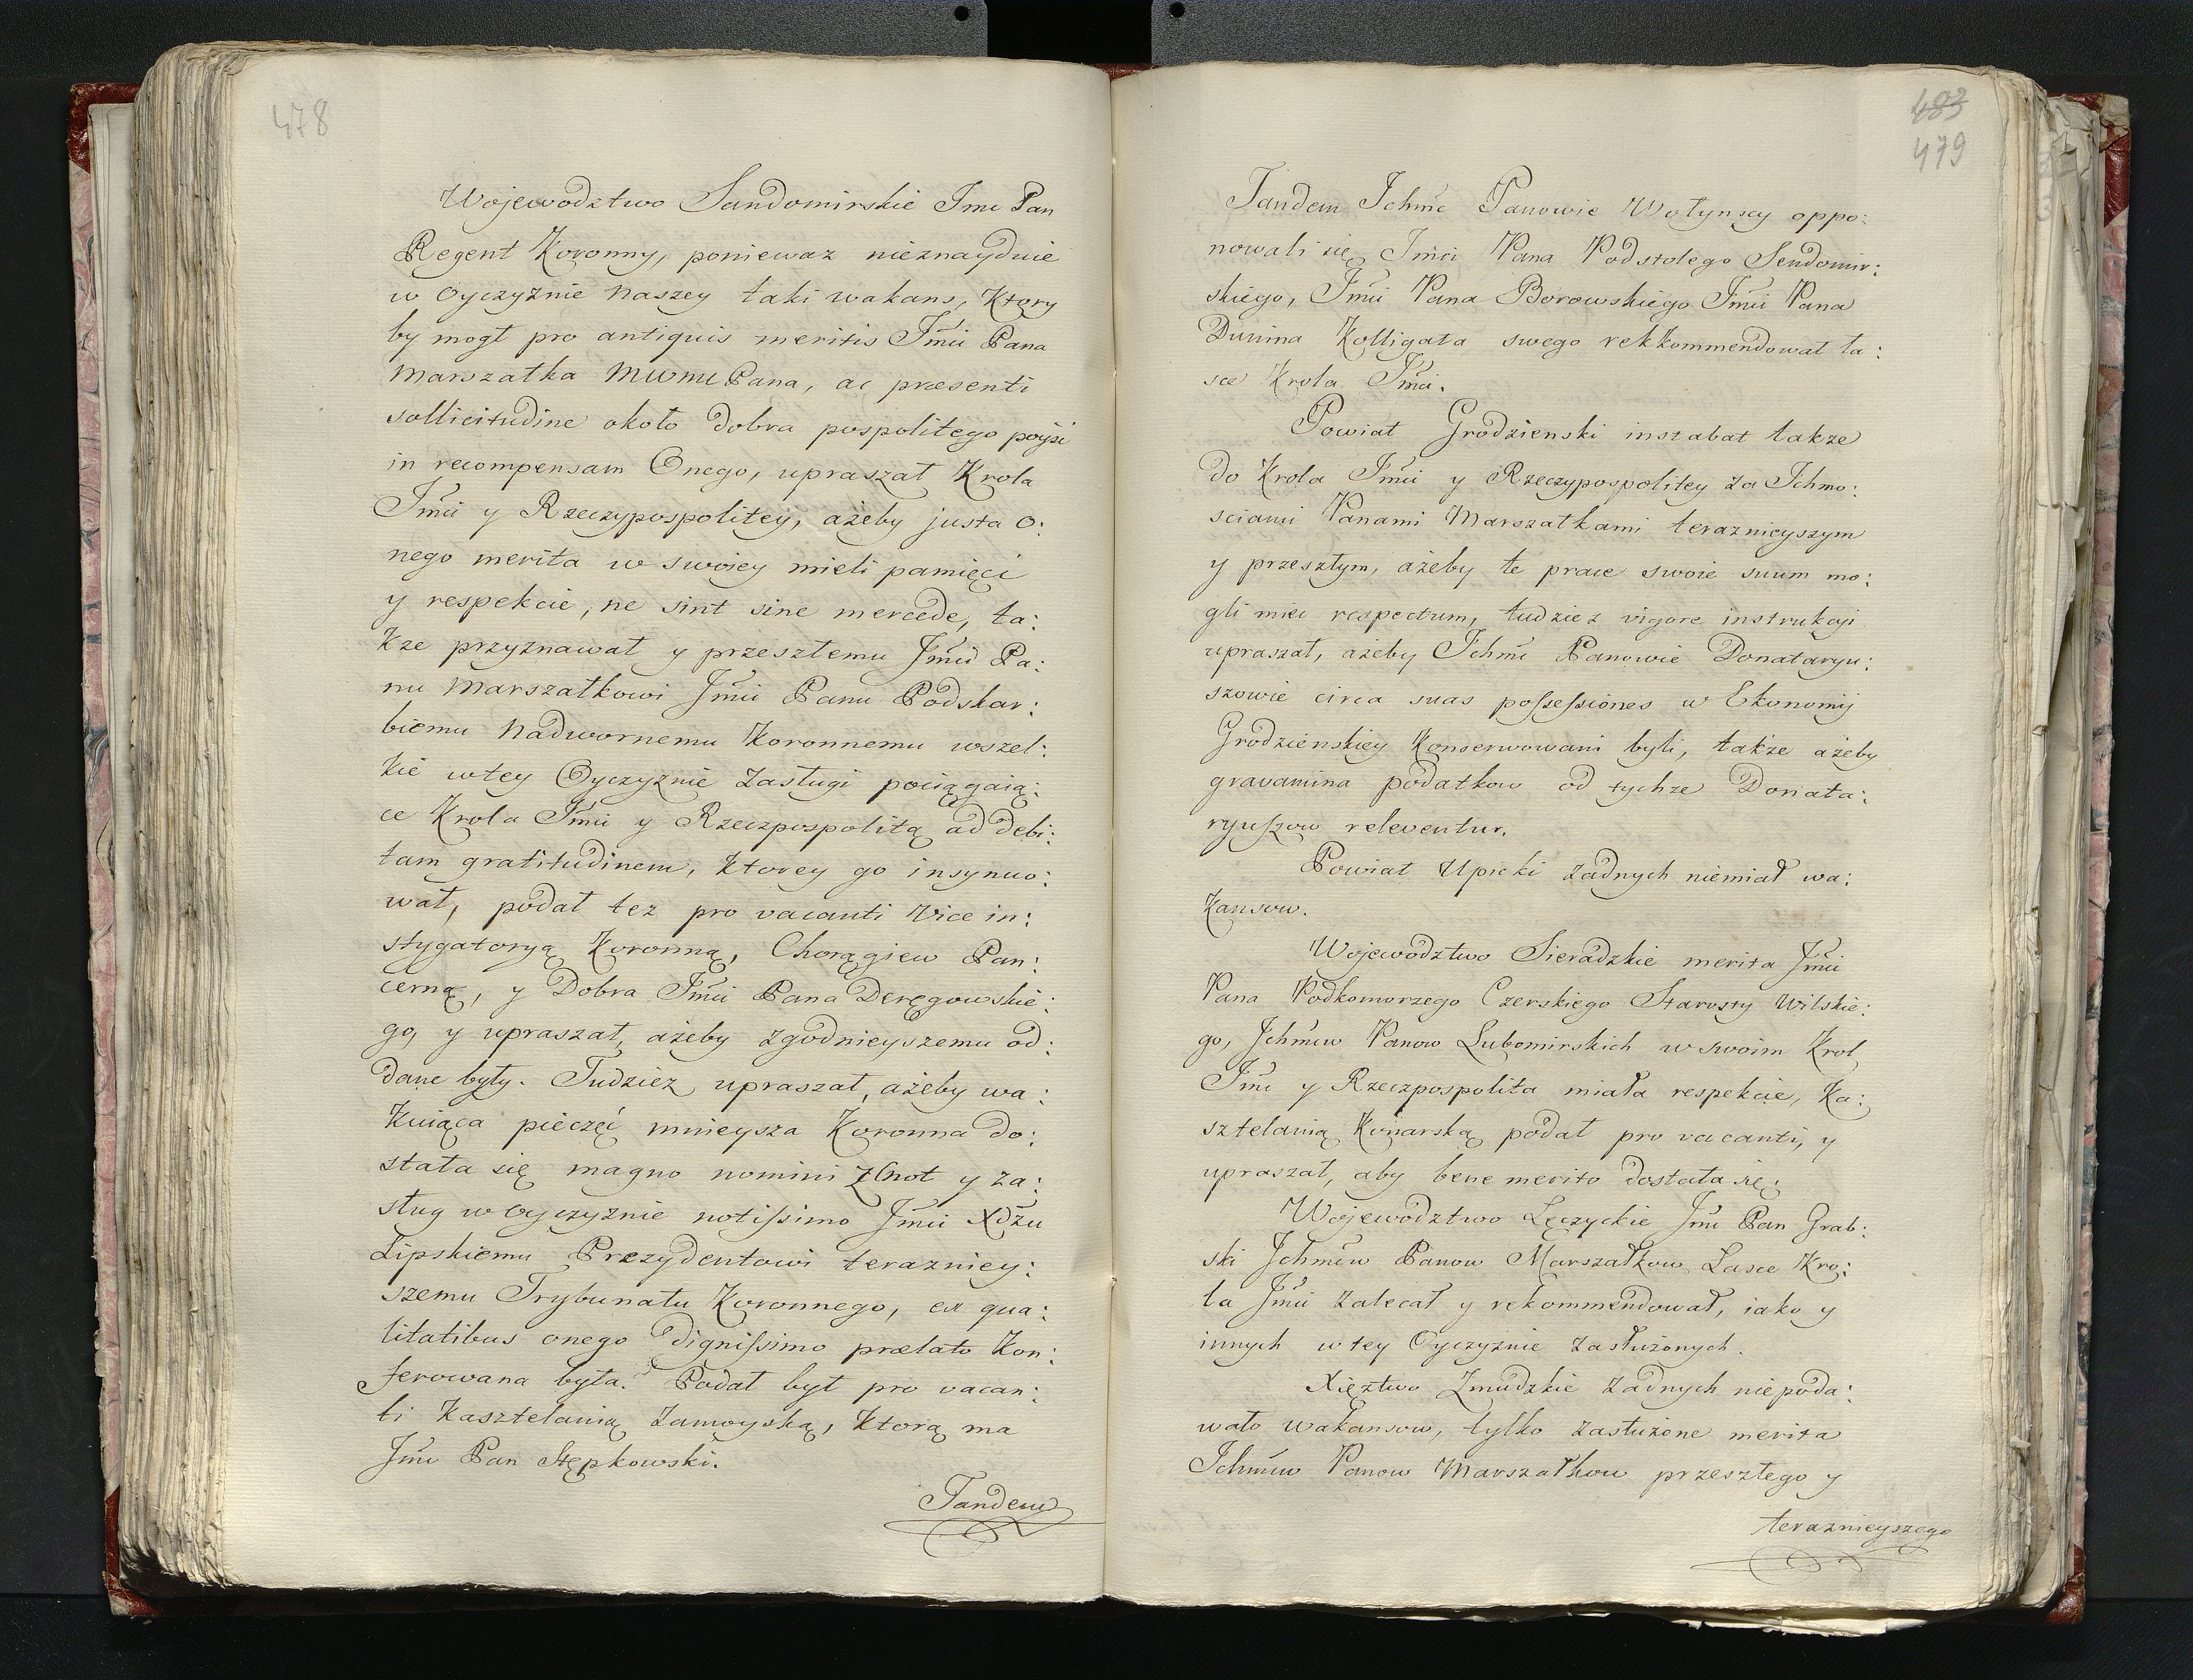 478
Wojewodztwo Sandomirskie Jmc Pan
Regent Koronny, poniewaz nieznayduie
w Oyczyznie naszey taki wakans, Ktory
by mogł pro antiquis meritis Jmci Pana
Marszałka MWmc Pana, ac præsenti
sollicitudine około dobra pospolitego poyść
in recompensam Onego, upraszał Krola
Jmci y Rzeczypospolitey, ażeby justa o:
nego merita w swoiey mieli pamięci
y respekcie, ne sint sine mercede, ta:
kze przyznawał y przeszłemu Jmci Pa:
nu Marszałkowi Jmci Panu Podskar:
biemu Nadwornemu Koronnemu wszel:
kie wtey Oyczyznie zasługi pociągaią:
ce Krola Jmci y Rzeczpospolitą ad debi:
tam gratitudinem, Ktorey go insynuo:
wał, podał tez pro vacanti Vice in:
stygatoryą Koronną, Chorągiew Pan:
cerną, y Dobra Jmci Pana Deręgowskie:
go, y upraszał, ażeby zgodnieyszemu od:
dane były. Tudziez upraszał, ażeby wa:
kuiąca pieczęć mnieysza Koronna do:
stała się magno nomini Cnot y za:
sług w Oyczyznie notissimo Jmci Xdzu
Lipskiemu Prezydentowi teraźniey:
szemu Trybunału Koronnego, ex qua:
litatibus onego dignissimo prælato kon:
ferowana była. Podał był pro vacan:
ti Kasztelanią Zamoyską, Ktorą ma
Jmc Pan Stępkowski.
Tandem
483
479
Tandem Jchmc Panowie Wołynscy oppo:
nowali się Jmci Pana Podstolego Sendomir:
skiego, Jmci Pana Borowskiego Jmci Pana
Dunina Kolligata swego rekkommendował ła:
sce Krola Jmci.
Powiat Grodzienski instabat takze
do Krola Jmci y Rzeczypospolitey za Jchmo:
sciami Panami Marszałkami teraznieyszym
y przeszłym, ażeby te prace swoie suum mo:
gli miec respectum, tudziez vigore instrukcji
upraszał, ażeby Jchmc Panowie Donataryu:
szowie circa suas possessiones w Ekonomij
Grodzienskiey Konserwowani byli, także ażeby
gravamina podatkow od tychze Donata:
ryuszow releventur.
Powiat Upicki żadnych niemiał wa:
kansow.
Wojewodztwo Sieradzkie merita Jmci
Pana Podkomorzego Czerskiego Starosty Wilskie:
go, Jchmcw Panow Lubomirskich w swoim Krol
Jmc y Rzeczpospolita miała respekcie, Ka:
sztelanią Konarską podał pro vacanti, y
upraszał, aby bene merito dostała się;
Wojewodztwo Lęczyckie Jmc Pan Grab:
ski Jchmcw Panow Marszałkow Łasce Kro:
la Jmci zalecał y rekommendował, iako y
innych w tey Oyczyźnie zasłużonych.
Xięztwo Zmudzkie żadnych niepoda:
wało wakansow, tylko zasłużone merita
Jchmcw Panow Marszałkow przeszłego y
teraznieyszego